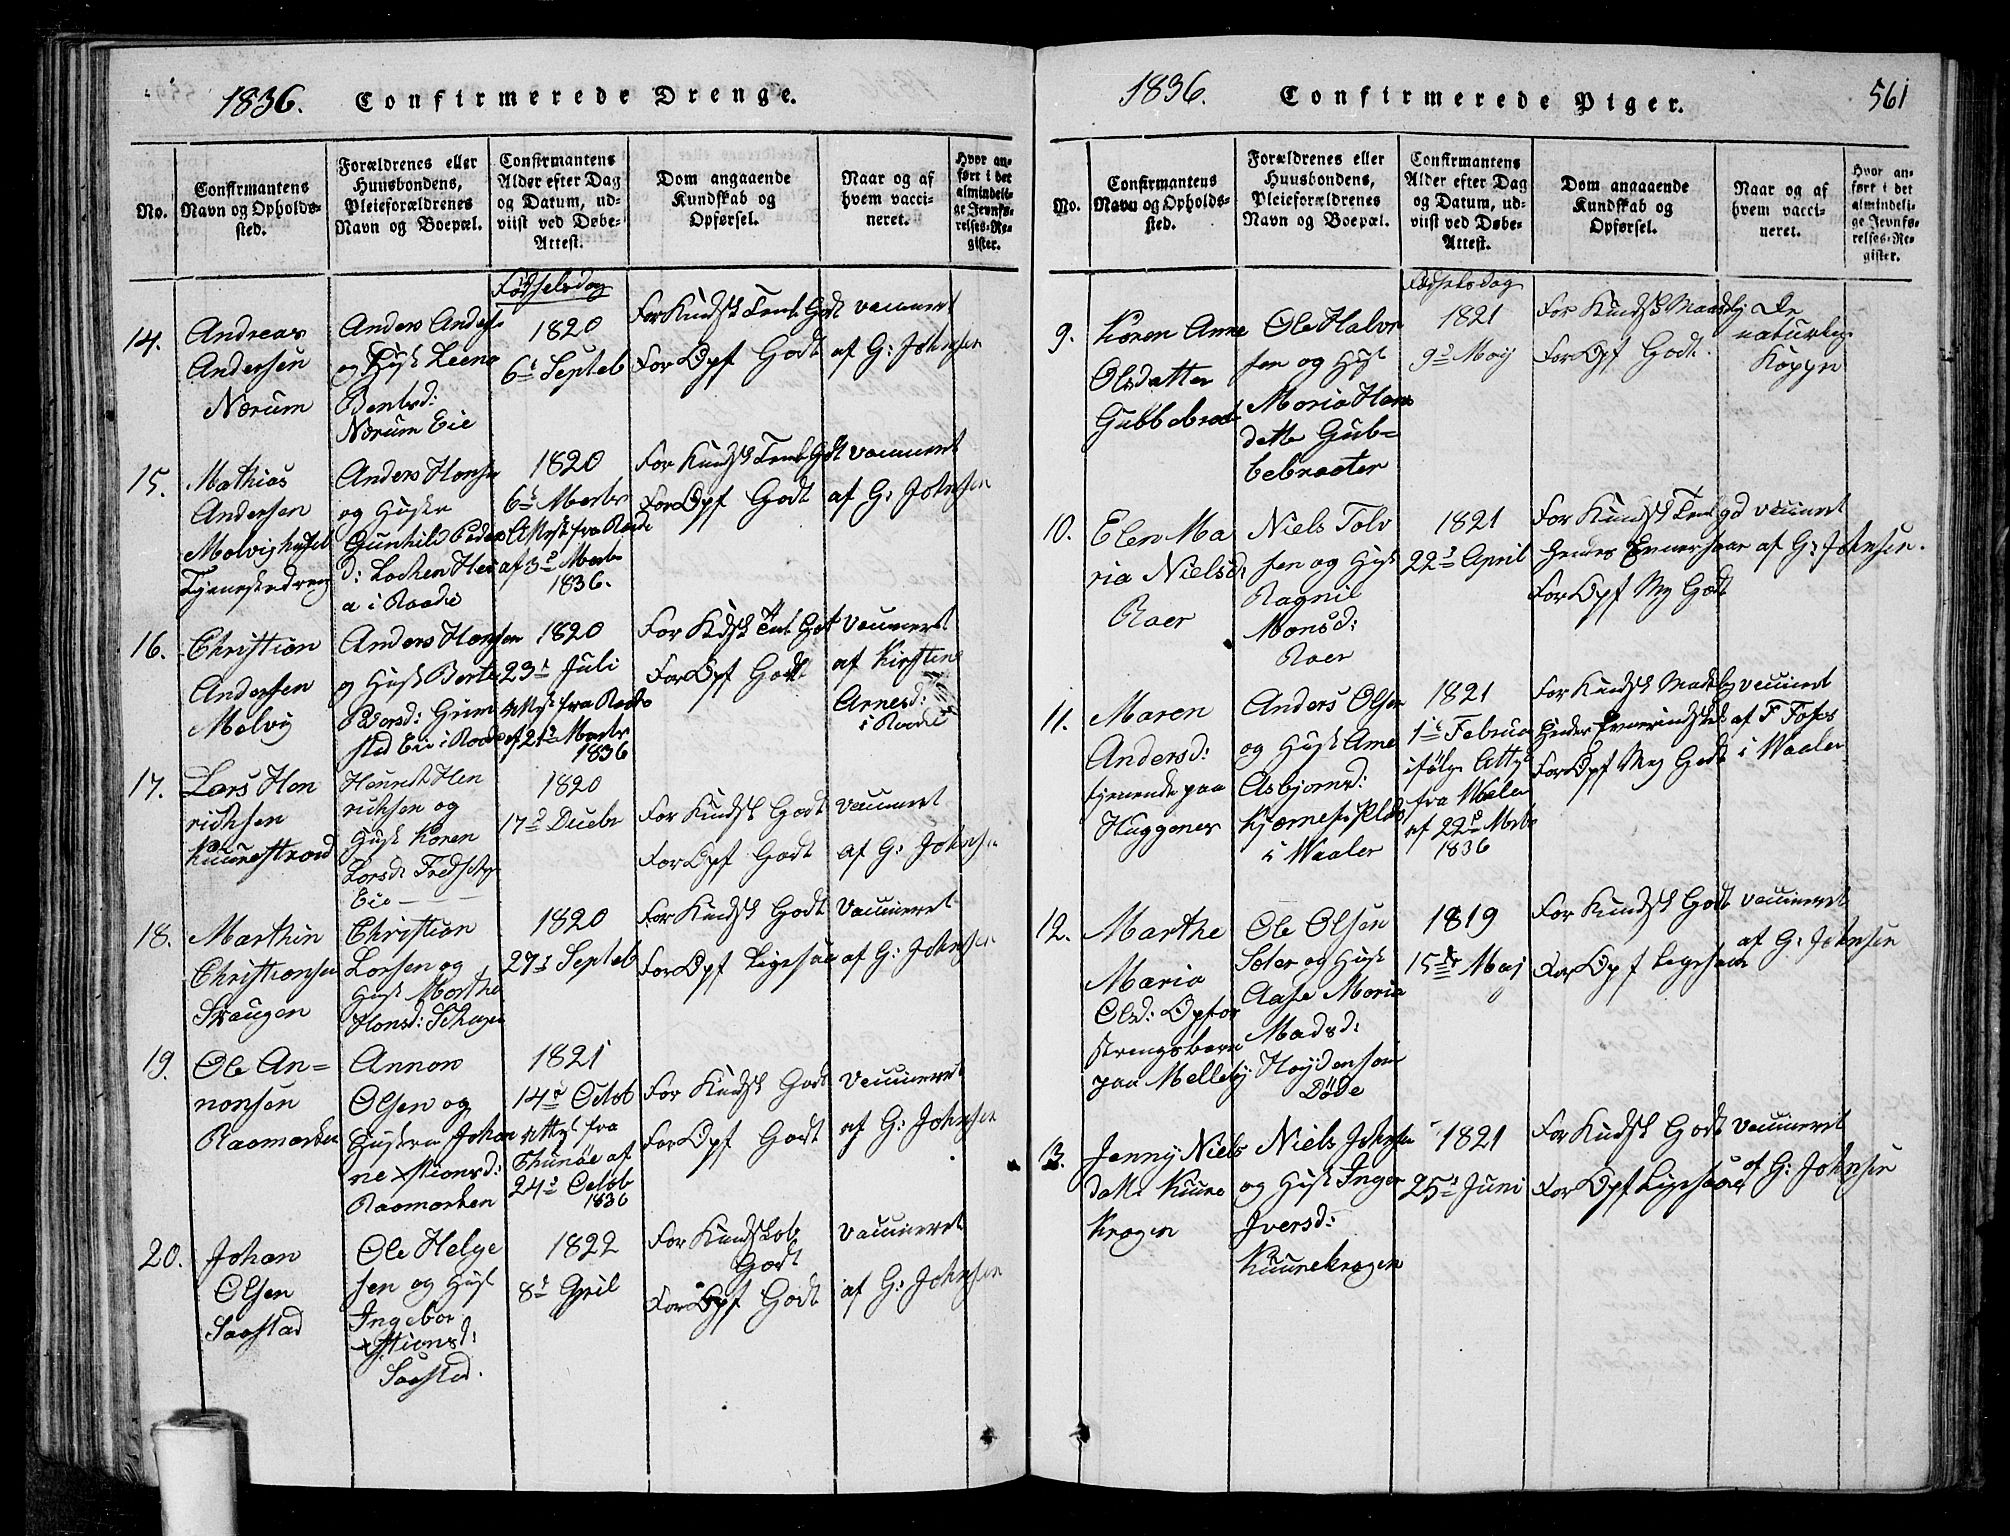 1836. Confirmerede Drenge.
No.
Confirmantens
Navn og Opholds-
sted.
Forældrenes eller
Huusbondens,
Pleieforældrenes
Navn og Boepæl.
Confirmantens
Alder efter Dag
og Datum, ud-
viist ved Døbe-
Attest.
Dom angaaende
Kundskab og
Opførsel.
Naar og af
hvem vacci-
neret.
Hvor an-
ført i det
almindeli-
ge Jevnfø-
relses-Re-
gister.
Fødselsdag
14.
Andreas
Andersen
Nærum
Anders Anders
og Hust Leene
Berntsd:
Nærum Eie
1820
6te Septeb
For Kundsk Teml Godt
For Opf Godt
vaccineret
af G: Johnsen
15.
Mathias
Andersen
Tjenestedreng
Anders Hansen
og Hustr
Gunhild Peders
d:
a i Raade
1820
6te
Attest fra Raade
af 3de
1836.
For Kundsk Teml Godt
For Opf Godt
vaccineret
af G: Johnsen
16.
Christian
Andersen
Molvig
Anders Hansen
og Hust Berte
Pedersd: Grim
stad Eie i Raade
1820
23de Juli
Attest fra Raade
af 21de
1836
For Kdsk Teml Godt
For Opf Godt
Vaccineret
af Kirsten
Arnesd:
i Raade
17.
Lars Hen
richsen
Kuurestrand
Henrich Hen
richsen og
Hust Karen
Larsd:
Eie
1820
17de Decbr
For Kundsk Godt
For Opf Godt
Vaccineret
af G: Johnsen
18.
Marthin
Christiansen
Skaugen
Christian
Larsen og
Hust Marthe
Hansd: Schaugen
1820
27de Septeb
For Kundsk Godt
For Opf Ligesaa
Vaccineret
af G: Johnsen
19.
Ole An=
nonsen
Raamarken
Annon
Olsen og
Hustru Johan
ne
Raamarken
1821
14de Octob
Attest fra
Thunøe af
24de Octob
1836
For Kundsk Godt
For Opf Godt
Vaccineret
af G: Johnsen
20.
Johan
Olsen
Saastad
Ole Helge
sen og Hust
Ingebor
Christiansd:
Saastad.
1822
8de April
For Kundskab
Godt
For Opf Godt
Vaccineret
af G: Johnsen
1836. Confirmerede Piger. 561
No.
Confirmantens
Navn og Opholds-
sted.
Forældrenes eller
Huusbondens,
Pleieforældrenes
Navn og Boepæl.
Confirmantens
Alder efter Dag
og Datum, ud-
viist ved Døbe-
Attest.
Dom angaaende
Kundskab og
Opførsel.
Naar og af
hvem vacci-
neret.
Hvor an-
ført i det
almindeli-
ge Jevnfø-
relses-Re-
gister.
Fødselsdag
9.
Karen Anne
Olsdatter
Gubbebraat
Ole Halvor
sen og Hust
Maria Hans
datter Gub=
bebraaten
1821
9de Maij
For Kundsk Maadelig
For Opf Godt.
De
naturlige
Kopper
10.
Elen Ma
ria Nielsd:
Roer
Niels Tolv
sen og Hust
Ragnil
Monsd:
Roer
1821
22de April
For Kundsk Teml god
For Opf Meg Godt
vaccineret
af G: Johnsen.
11.
Maren
Andersd:
tjenende paa
Huggenes
Anders Olsen
og Hust Ane
Asbjørnsd:
Kjærnes Plads
i Waaler
1821
1de Februar
ifølge Attest
fra Waaler
af 22de
1836
For Kundsk Maadelig
For Opf Meg Godt
vaccineret
af F Foss
i Waaler
12.
Marthe
Maria
Olsd: Opfo
strengsbarn
paa Melleby
Ole Olsen
og Hust
Aase Maria
Madsd:
Høyden som
Døde
1819
15de Maj
For Kundsk Godt
For Opf Ligesaa
vaccineret
af G: Johnsen
13.
Jenny Niels
datter Kuure
Kragen
Niels Johnsen
og Hust Inger
Iversd:
Kuurekragen
1821
25de Juni
For Kundsk Godt
For Opf Ligesaa
Vaccineret
af G: Johnsen